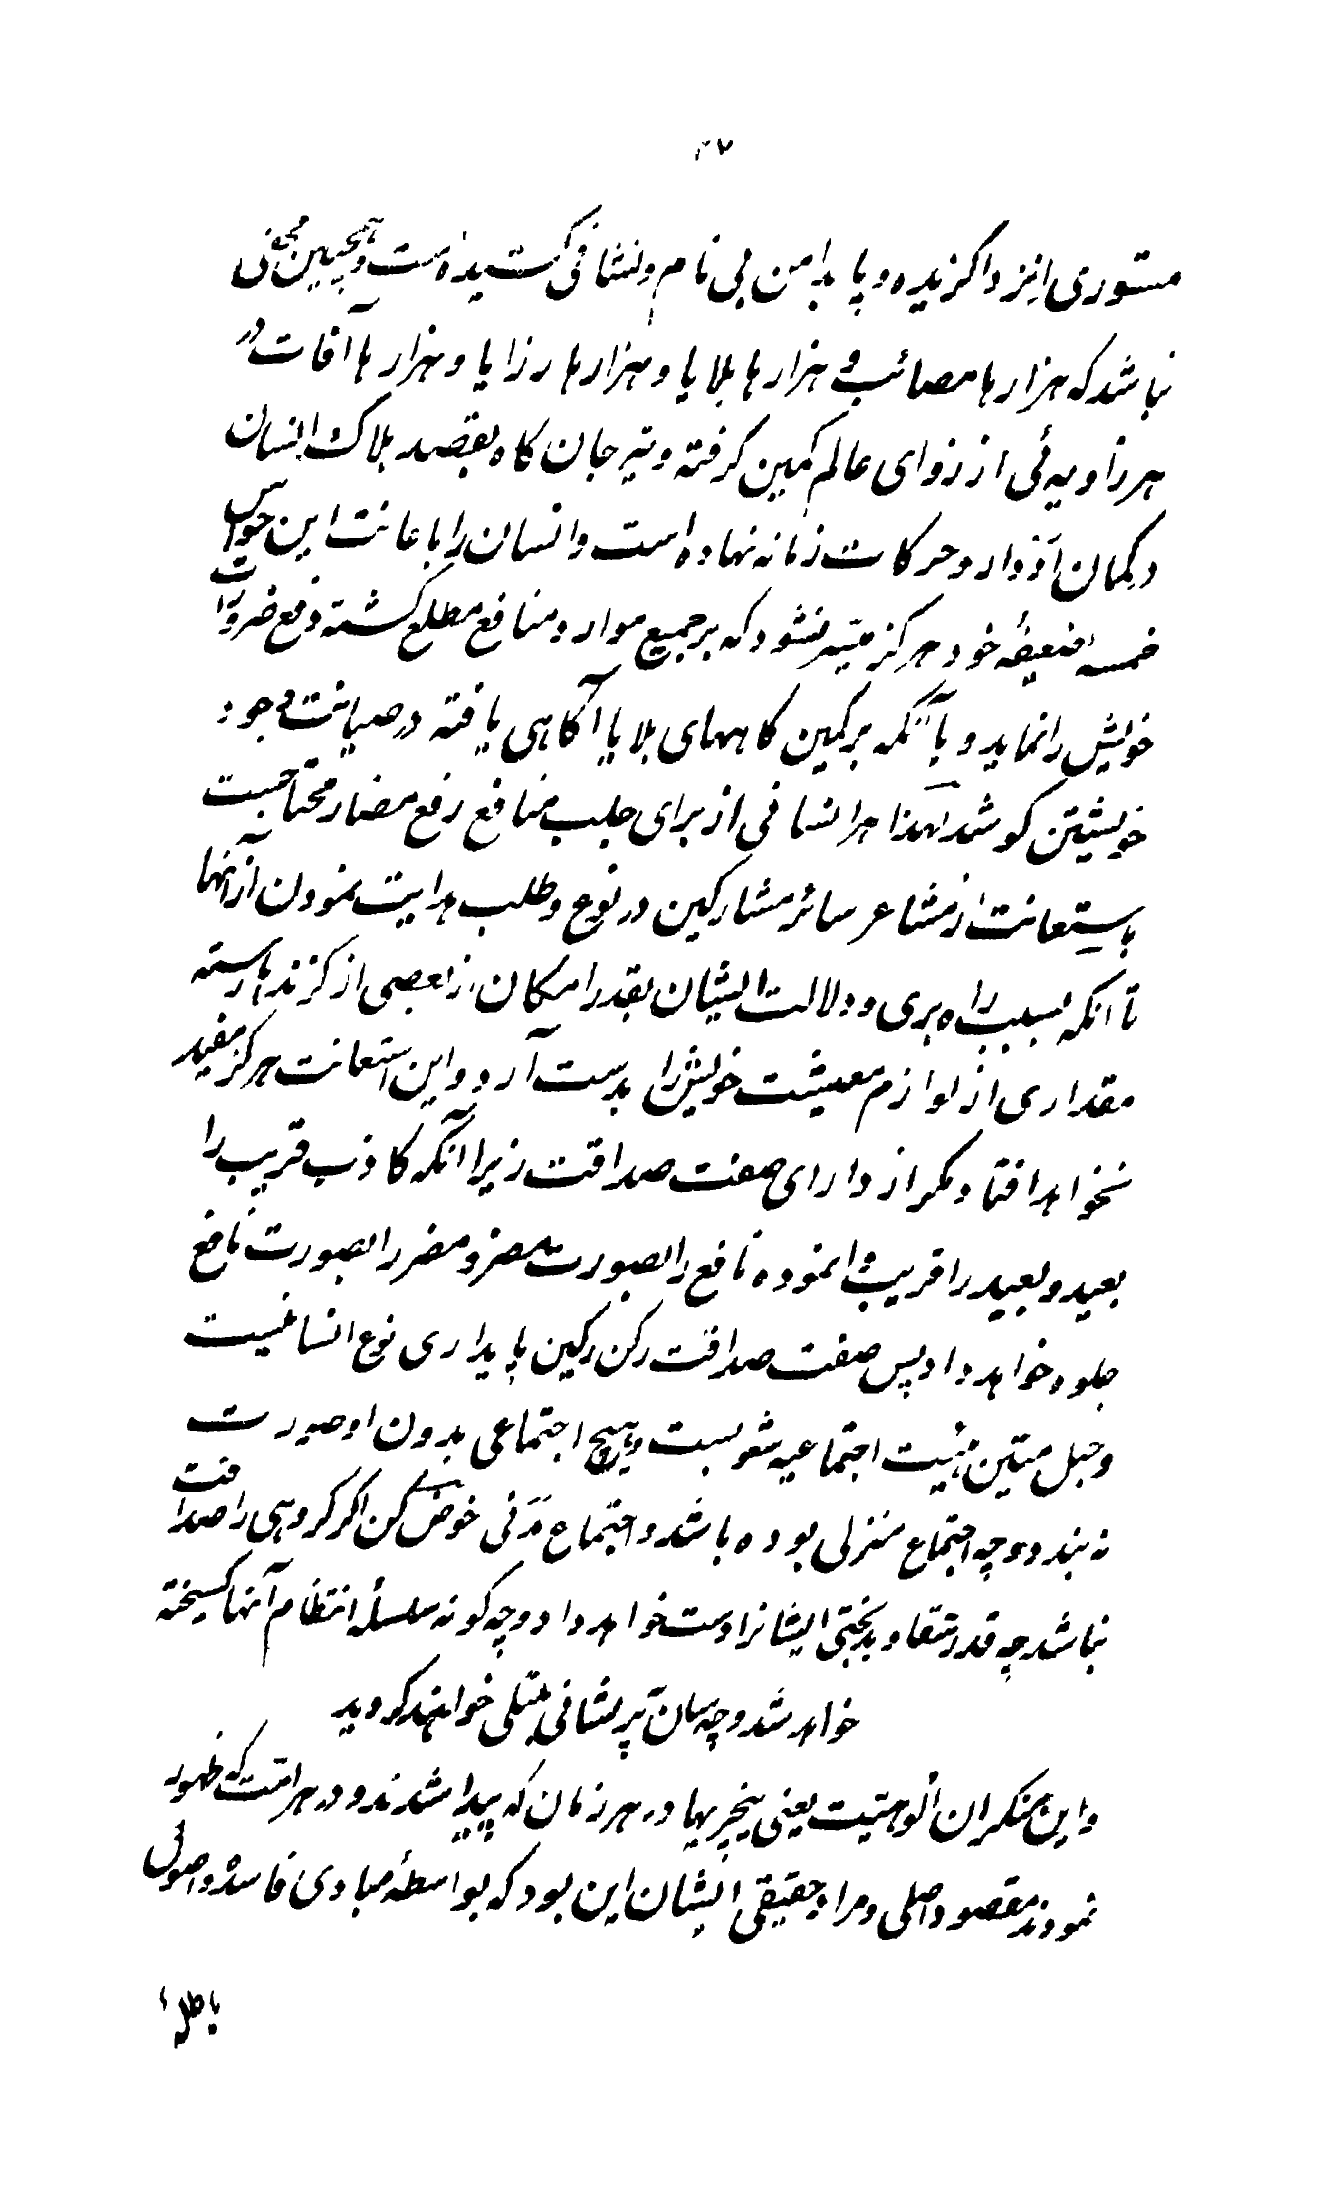 ۲۷
مستوری انزوا گزیده و پا بدامن بی نام و نشانی کشیده است و همچنین مخفی
نباشد که هزارها مصائب و هزارها بلایا و هزارها رزایا و هزارها آفات در
هر زاویه ئی از زوای عالم کمین گرفته و تیر جان کاه بقصد هلاک انسان
در کمان ادوار و حرکات زمانه نهاده است و انسان را باعانت این حواس
خمسهٔ ضعیفهٔ خود هرگز میسر نشود که بر جمیع موارد منافع مطلع گشته دفع ضرورات
خویش را نماید و یا آنکه بر کمین گاههای بلایا آگاهی یافته در صیانت وجود
خویشتن کوشد لهذا هر انسانی از برای جلب منافع و رفع مضار محتاجست
باستعانت از مشاعر سائر مشارکین در نوع و طلب هدایت نمودن از آنها
تا آنکه بسبب راه بری و دلالت ایشان بقدر امکان از بعضی از گزندها رسته
مقداری از لوازم معیشت خویش را بدست آرد و این استعانت هرگز مفید
نخواهد افتاد مگر از دارای صفت صداقت زیرا آنکه کاذب قریب را
بعید و بعید را قریب وانموده نافع را بصورت مضر و مضر را بصورت نافع
جلوه خواهد داد پس صفت صداقت رکن رکین پایداری نوع انسانیست
و حبل متین هیئت اجتماعیه شعوبست و هیچ اجتماعی بدون او صورت
نه بندد و چه اجتماع منزلی بوده باشد و اجتماع مدنی خوض کن اگر گروهی را صداقت
نباشد چه قدر شقا و بدبختی ایشانرا دست خواهد داد و چه گونه سلسلهٔ انتظام آنها گسیخته
خواهد شد و چه سان پریشانی مبتلی خواهند گردید
و این منکران الوهیت یعنی نیچریها در هر زمان که پیدا شدند و در هر امت که ظهور
نمودند مقصود اصلی و مراد حقیقی ایشان این بود که بواسطهٔ مبادی فاسده و اصول
باطلهٔ